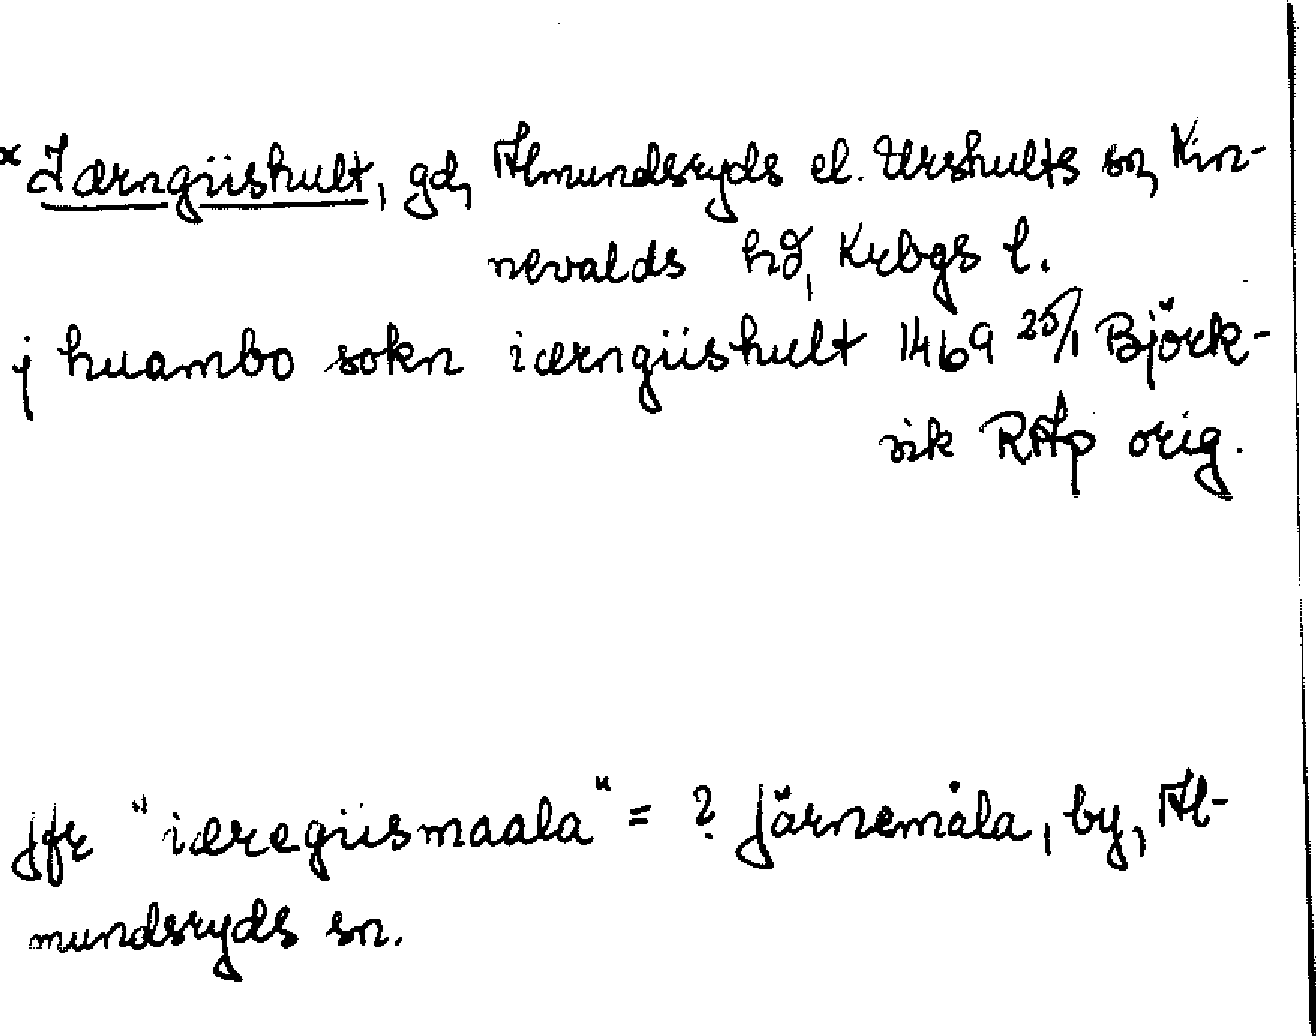 × Jærngiishult, gd, Almundsryds el. Urshults sn, Kin-
nevalds hd, Krbgs l.
j huambo sokn iærngiishult 1469 25/1 Björk-
vik RAp orig.
Jfr "iæregiismaala" = ? Järnemåla, by, Al-
mundsryds sn.